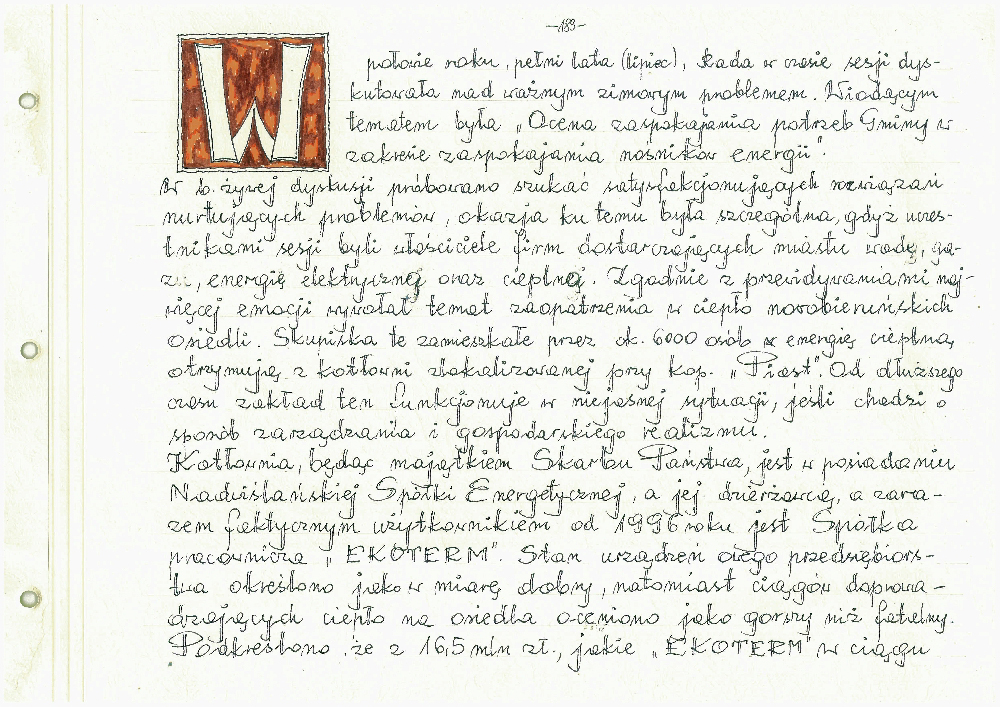 -189-
W połowie roku, pełni lata (lipiec), Rada w czasie sesji dys-
kutowała nad ważnym zimowym problemem. Wiodącym
tematem była „Ocena zaspokajania potrzeb Gminy w
zakresie zaspokajania nośników energii".
W b. żywej dyskusji próbowano szukać satysfakcjonujących rozwiązań
nurtujących problemów, okazja ku temu była szczególna, gdyż uczes-
tnikami sesji byli właściciele firm dostarczających miastu wodę, ga-
zu, energię elektrycznej oraz cieplnej. Zgodnie z przewidywaniami naj-
więcej emocji wywołał temat zaopatrzenia w ciepło nowobieruńskich
osiedli. Skupiska te zamieszkałe przez ok. 6000 osób w energię cieplną
otrzymują z kotłowni zlokalizowanej przy kop. „Piast". Od dłuższego
czasu zakład ten funkcjonuje w niejasnej sytuacji, jeśli chodzi o
sposób zarządzania i gospodarskiego realizmu.
Kotłownia, będąc majątkiem Skarbu Państwa, jest w posiadaniu
Nadwiślańskiej Spółki Energetycznej, a jej dzierżawcą, a zara-
zem faktycznym użytkownikiem od 1996 roku jest Spółka
pracownicza „EKOTERM". Stan urządzeń owego przedsiębiors-
twa określono jako w miarę dobry, natomiast ciągów doprowa-
dzających ciepło na osiedla oceniono jako gorszy niż fatalny.
Podkreślono, że z 16,5 mln zł., jakie „EKOTERM" w ciągu